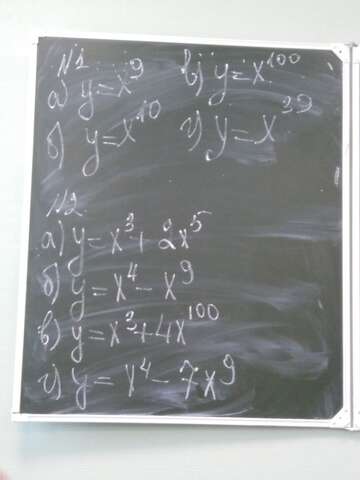 №1
а) y=x⁹ в) y=x¹⁰⁰
б) y=x¹⁰ г) y=x³⁹
№2
а) y=x³+2x⁵
б) y=x⁴-x⁹
в) y=x³+4x¹⁰⁰
г) y=x⁴-7x⁹